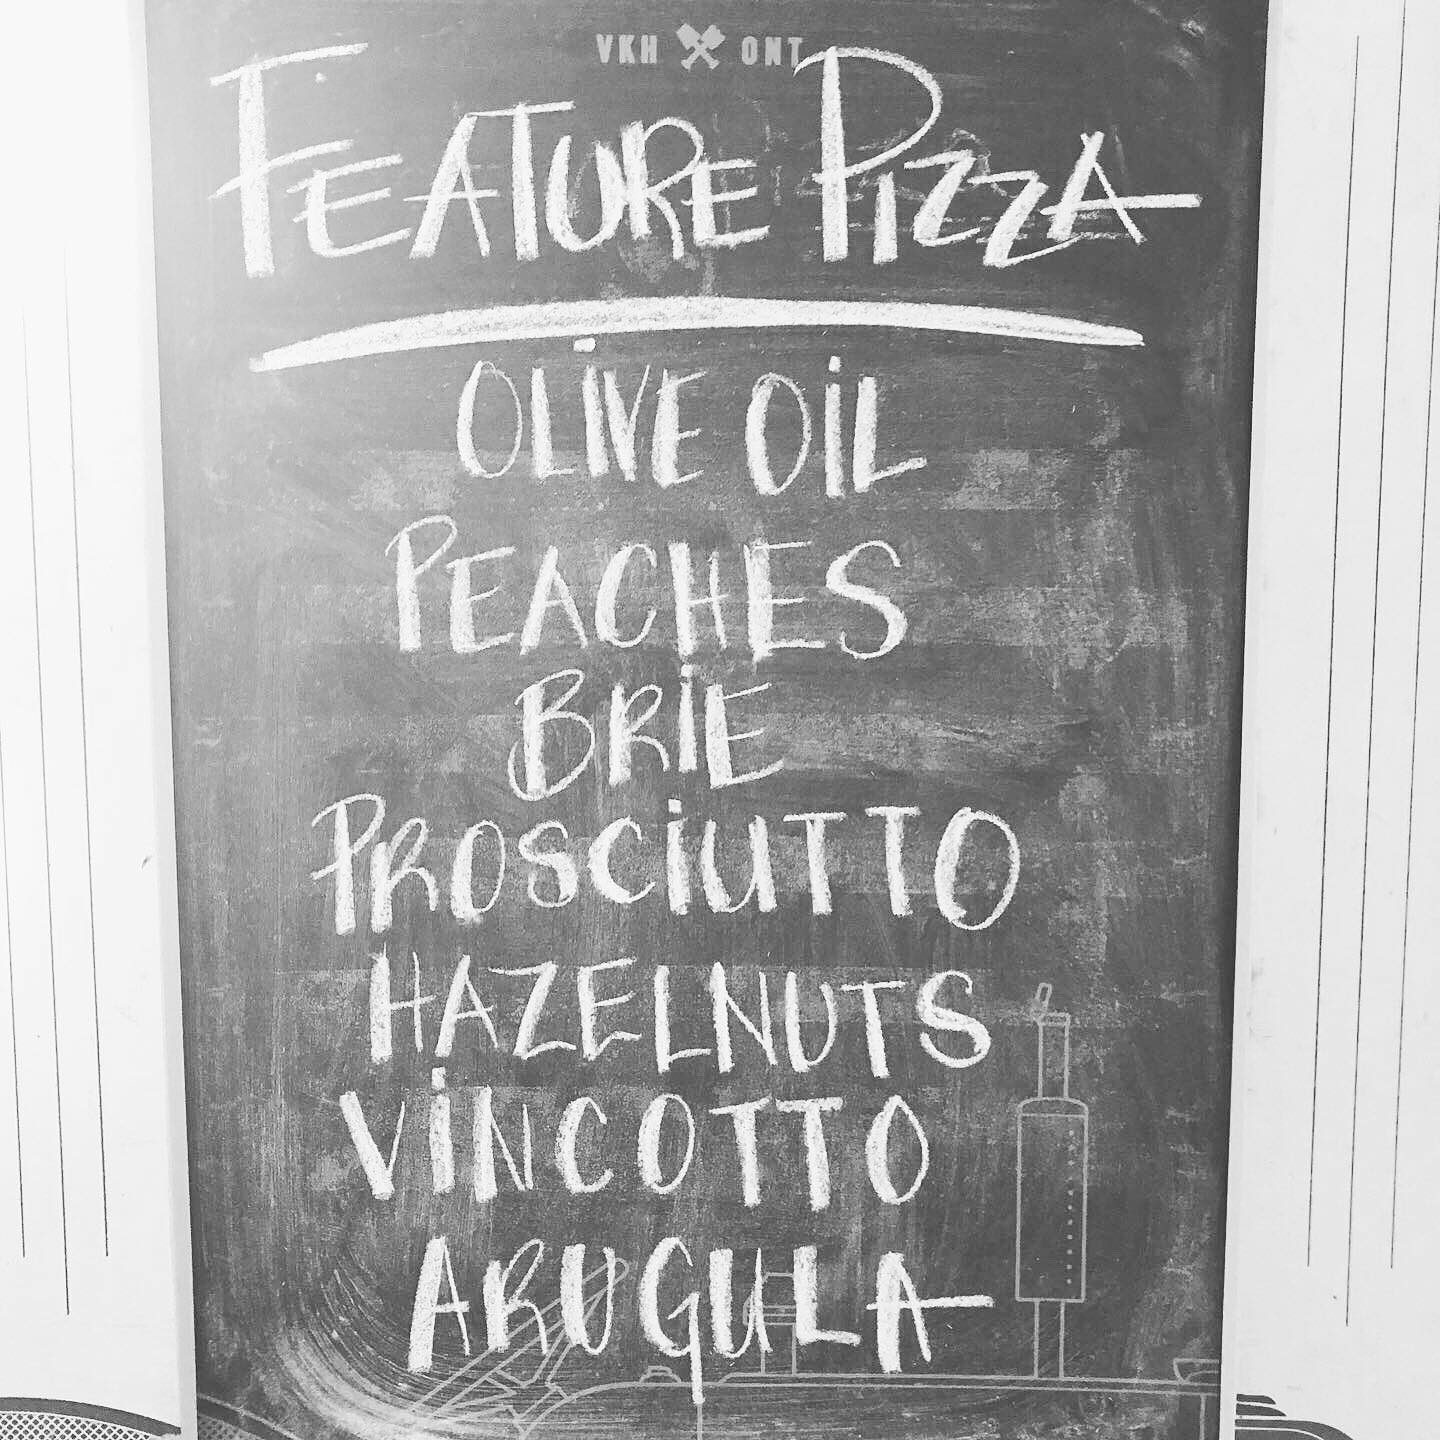 VKH ONT
FEATURE PIZZA
OLIVE OIL
PEACHES
BRIE
PROSCIUTTO
HAZELNUTS
VINCOTTO
ARUGULA